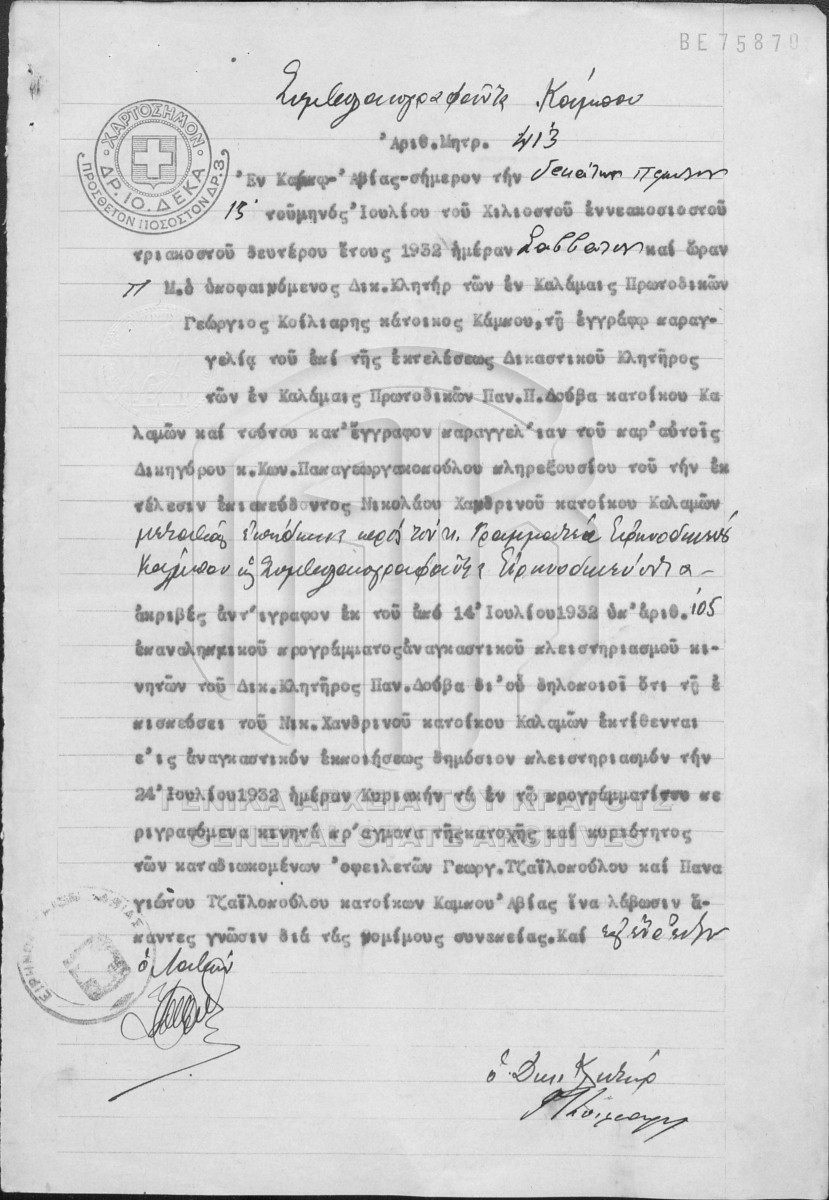 ΒΕ 75870
Συμβολαιογραφοῦντα Κάμπου
ΧΑΡΤΟΣΗΜΟΝ
ΔΡ.10.ΔΕΚΑ
ΠΡΟΣΘΕΤΟΝ ΠΟΣΟΣΤΟΝ ΔΡ.3
Ἀριθ.Μητρ. 413
Ἐν Κάμπῳ-Ἀβίας-σήμερον τὴν
τοῦμηνός Ἰουλίου τοῦ Χιλιοστοῦ ἐννεακοσιοστοῦ
τριακοστοῦ δευτέρου ἔτους 1932 ἡμέραν Σάββατον καί ὥραν
Μ.ὁ ὑποφαινόμενος Δικ.Κλητήρ τῶν ἐν Καλάμαις Πρωτοδικῶν
Γεώργιος Κοίλιαρης κάτοικος Κάμπου,τῇ ἐγγράφῳ παραγ-
γελίᾳ τοῦ ἐπί τῆς ἐκτελέσεως Δικαστικοῦ Κλητῆρος
τῶν ἐν Καλάμαις Πρωτοδικῶν Παν.Π.Δούβα κατοίκου Κα
λαμῶν καί τούτου κατ'ἔγγραφον παραγγελ'ίαν τοῦ παρ'αὐτοῖς
Δικηγόρου κ.Κων.Παπαγεωργακοπούλου πληρεξουσίου τοῦ τήν ἐκ
τέλεσιν ἐπισπεύδοντος Νικολάου Χανδρινοῦ κατοίκου Καλαμῶν
μεταβάς ἐπέδωκα πρός τόν κ. Γραμματέα Εἰρηνοδικείου
Κάμπου ὡς Συμβολαιογραφοῦντα Εἰρηνοδικεύοντα
ἀκριβές ἀντ'ιγραφον ἐκ τοῦ ἀπό 14 Ἰουλίου1932 ὑπ'ἀριθ. 105
ἐπαναληπτικοῦ προγράμματοςἀναγκαστικοῦ πλειστηριασμοῦ κι-
νητῶν τοῦ Δικ.Κλητῆρος Παν.Δούβα δι'οὗ δηλοποιεῖ ὅτι τῇ ἐ
πισπεύσει τοῦ Νικ.Χανδρινοῦ κατοίκου Καλαμῶν ἐκτίθενται
ε'ἰς ἀναγκαστικόν ἐκποιήσεως δημόσιον πλειστηριασμόν τήν
24 Ἰουλίου1932 ἡμέραν Κυριακήν τά ἐν τῷ προγράμματίτου πε
ριγραφόμενα κινητά πρ'άγματα τῆςκατοχῆς καί κυριότητος
τῶν καταδιωκομένων ὀφειλετῶν Γεωργ.Τζαϊλοπούλου καί Πανα
γιώτου Τζαϊλοπούλου κατοίκων Καμπου Ἀβίας ἵνα λάβωσιν ἅ-
παντες γνῶσιν διά τάς νομίμους συνεπείας.Καί
ὁ Λαβών
ὁ Δικ. Κλητήρ
ΓΕΝΙΚΑ ΑΡΧΕΙΑ ΤΟΥ ΚΡΑΤΟΥΣ
GENERAL STATE ARCHIVES